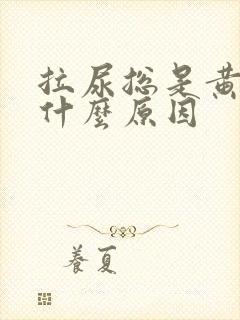 拉尿总是黄
什麼原因
養夏